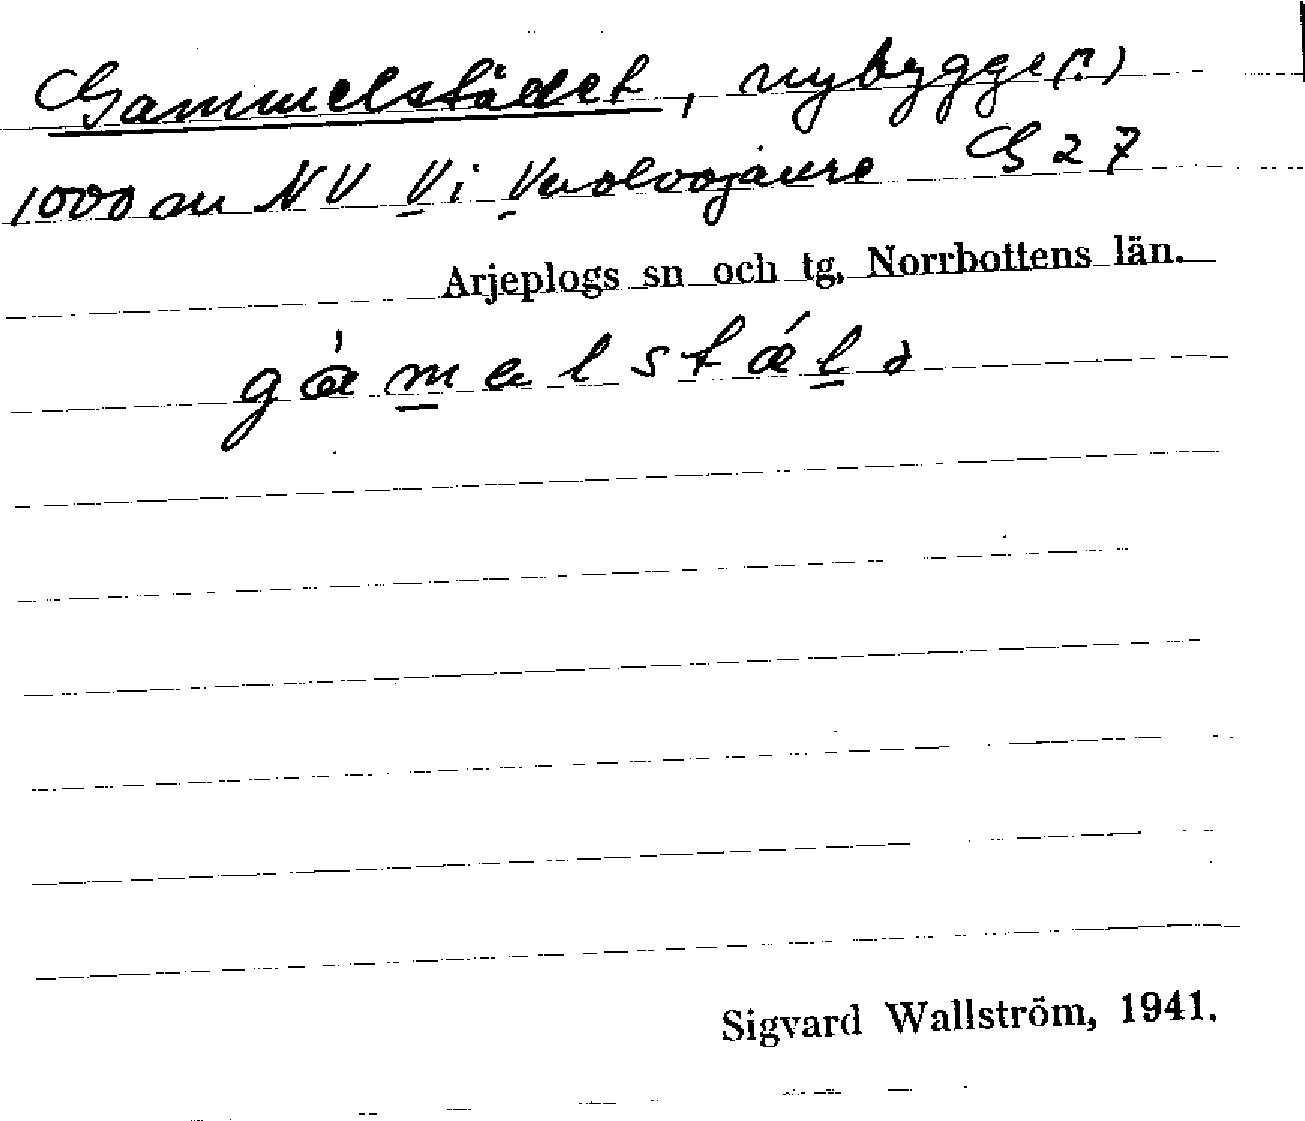 Gammelstådet, nybygge(?)
1000 m NV V i Vuolvojaure G 27
Arjeplogs sn och tg, Norrbottens län.
Sigvard Wallström, 1941.